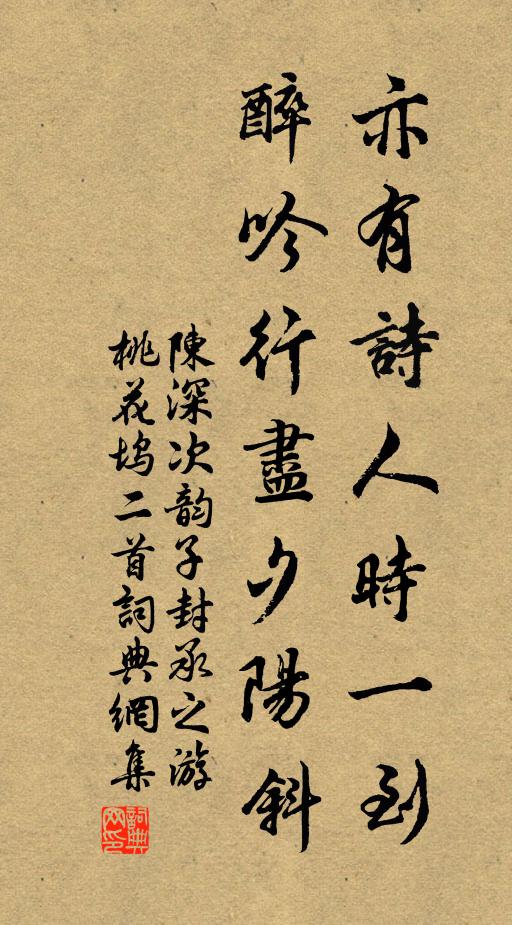 亦有詩人時一到
醉吟行盡夕陽斜
陳深次韵子封承之游
桃花塢二首詞典網集
詞典
网印